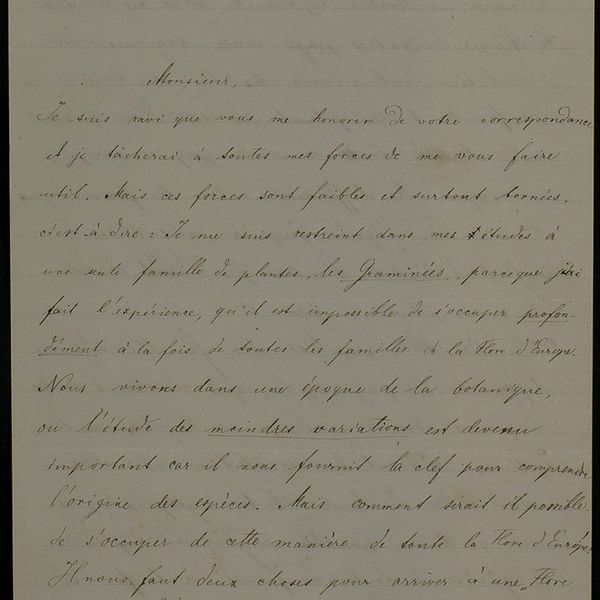 Monsieur,
Je suis ravi que vous me honorer de votre correspondance
et je tâcherai à toutes mes forces de me vous faire
util. Mais ces forces sont faibles et surtout bornées,
c'est-à-dire: Je me suis restreint dans mes études à
une seule famille de plantes, les Graminées, parceque j'ai
fait l'expérience, qu'il est impossible de s'occuper profon-
dément à la fois de toutes les familles de la Flore d'Europe.
Nous vivons dans une époque de la botanique,
ou l'étude des moindres variations est devenu
important car il nous fournit la clef pour comprendre
l'origine des espèces. Mais comment serait il possible
de s'occuper de cette manière de toute la Flore d'Europe.
Il nous faut deux choses pour arriver à une „Flore